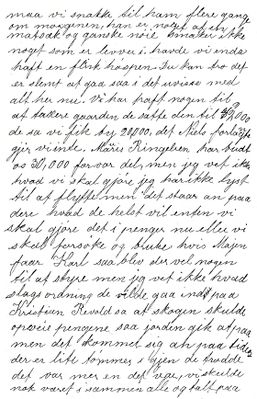 maa vi snakke til ham flere gang
om morgenen, han er noget af en
matvrak og ganske nöie smaker ikke
noget som er levver i havde vi enda
haft en flink hospen. Du kan tro det
er slemt at gaa saa i det uvisse med
alt her nu. Vi har haft nogen til
at taxere gaarden de satte den til 26,000
de sa vi fik by 28000, det Niels forlangte
gjer vi inte. Maris Ringelien har budt
os 30,000 for vor del, men jeg vet ikke
hvad vi skal gjøre jeg har ikke lyst
til at flytte men det staar an paa
dere hvad de helst vil enten vi
skal gjøre det i penger nu eller vi
skal forsöke og bruke hvis Majen
faar Karl saa blev der vel nogen
til at styre men jeg vet ikke hvad
slags ordning de vilde gaa ind paa
Kristian Revold sa at skogen skulde
opveie pengene saa jorden gik at paa
men det kommer sig an paa tider
der er litt tømmer i hjen de trodde
det var mer en det var, vi skulde
nok været i sammen alle og talt paa